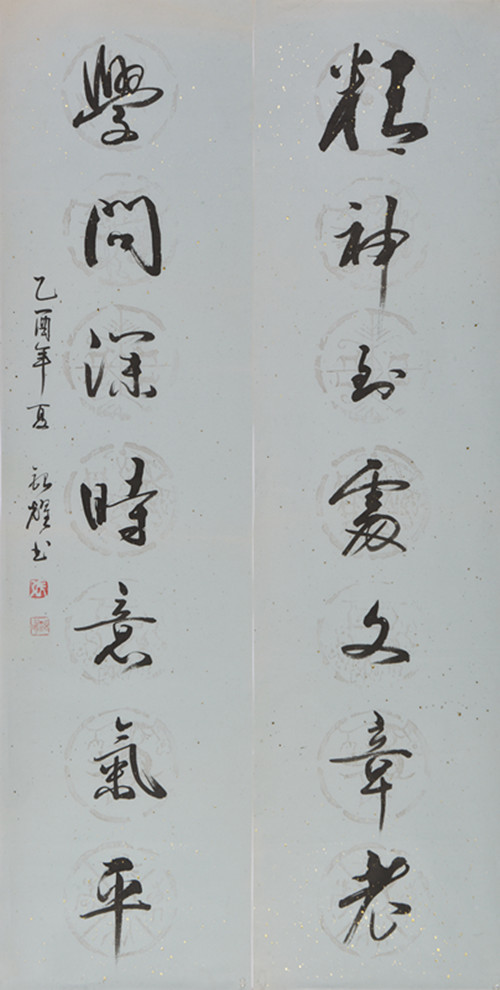 精神到處文章老
學問深時意氣平
乙酉年夏
耀書